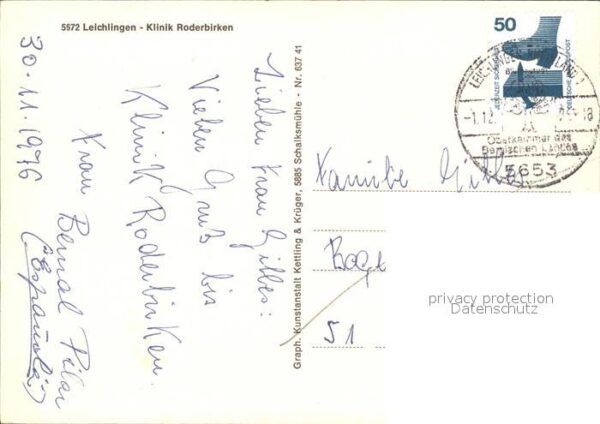 5672 Leichlingen - Klinik Roderbirken
30.11.1976
Lieben Frau Gilles:
Vielen Gruß bis
Klinik Roderbirken.
Frau Bernal Pilar
(Española)
Graph. Kunstanstalt Kettling & Krüger, 5885 Schalksmühle - Nr. 637 41
50
JEDERZEIT SICHERHEIT
DEUTSCHE BUNDESPOST
LEICHLINGEN
-1.12.
-18
Obstkammer des
Bergischen Landes
5653
Familie Gilles
51
privacy protection
Datenschutz